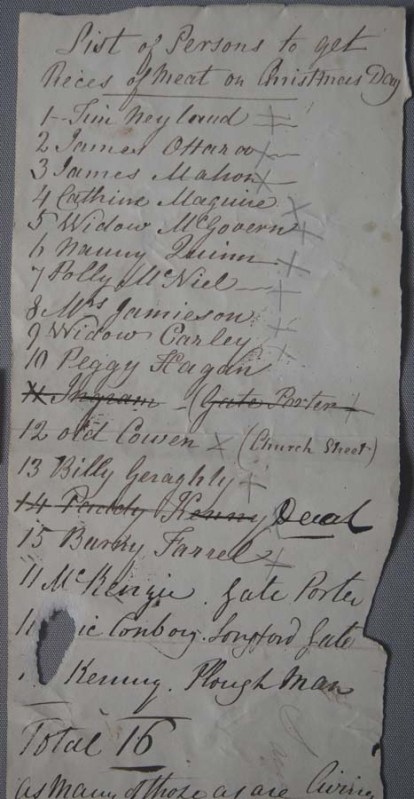 List of Persons to get
Pieces of Meat on Christmas Day
1 - Tim Neyland
2 James OHara
3 James Mahon
4 Cathine Maguire
5 Widow McGovern
6 Nanny Quinn
7 Polly McNiel
8 Mrs Jamieson
9 Widow Carley
10 Peggy Hagan
11 Ingram - (Gate Porter)
12 Old Cowen (Church Street)
13 Billy Geraghly
14 Paddy Kenny Dead
15 Barny Farrel
11 McKenzie . Gate Porter
11 ic Conboy. Longford Gate
Kenny. Plough Man
Total 16
as many of those as are living